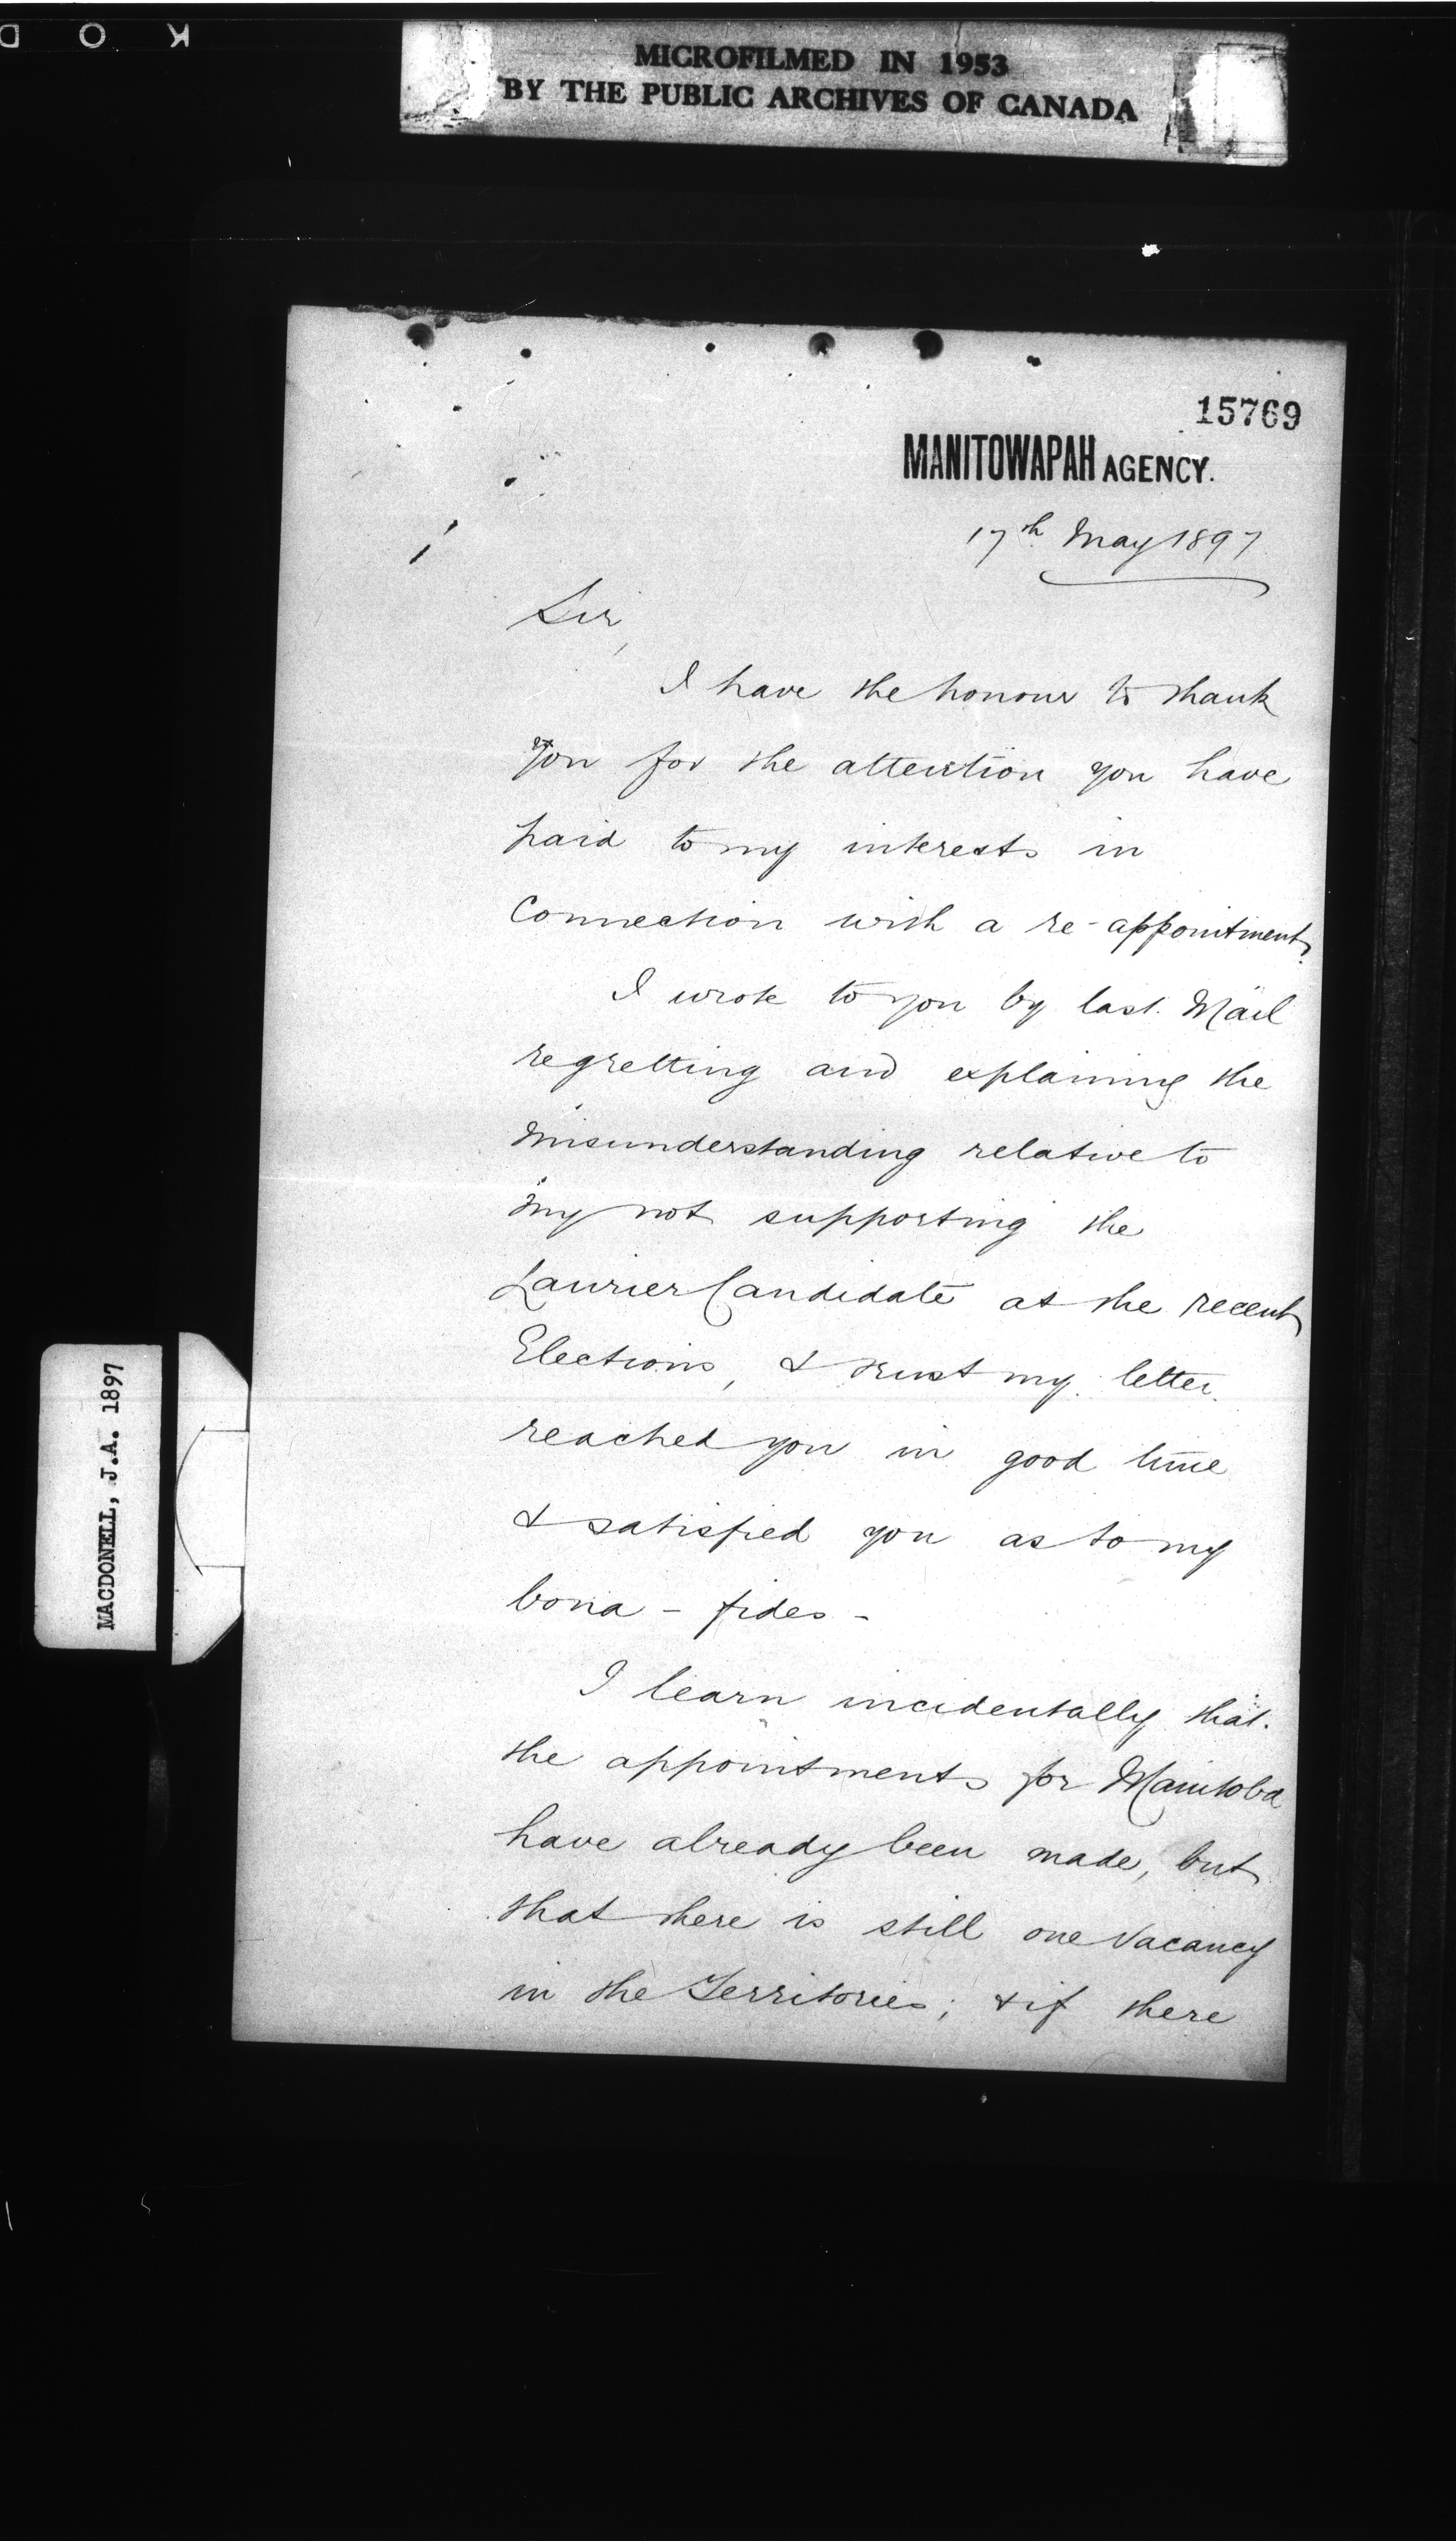 KOD
MICROFILMED IN 1953
BY THE PUBLIC ARCHIVES OF CANADA
15769
MANITOWAPAH AGENCY.
17th May 1897
Sir,
I have the honour to thank
you for the attention you have
paid to my interests in
Connection with a re-appointment.
I wrote to you by last Mail
regretting and explaining the
misunderstanding relative to
my not supporting the
Laurier Candidate at the recent
Elections, & trust my letter
reached you in good time
& satisfied you as to my
bona - fides -
I learn incidentally that
the appointments for Manitoba
have already been made, but
that there is still one Vacancy
in the Territories; & if there
MACDONELL, J.A. 1897